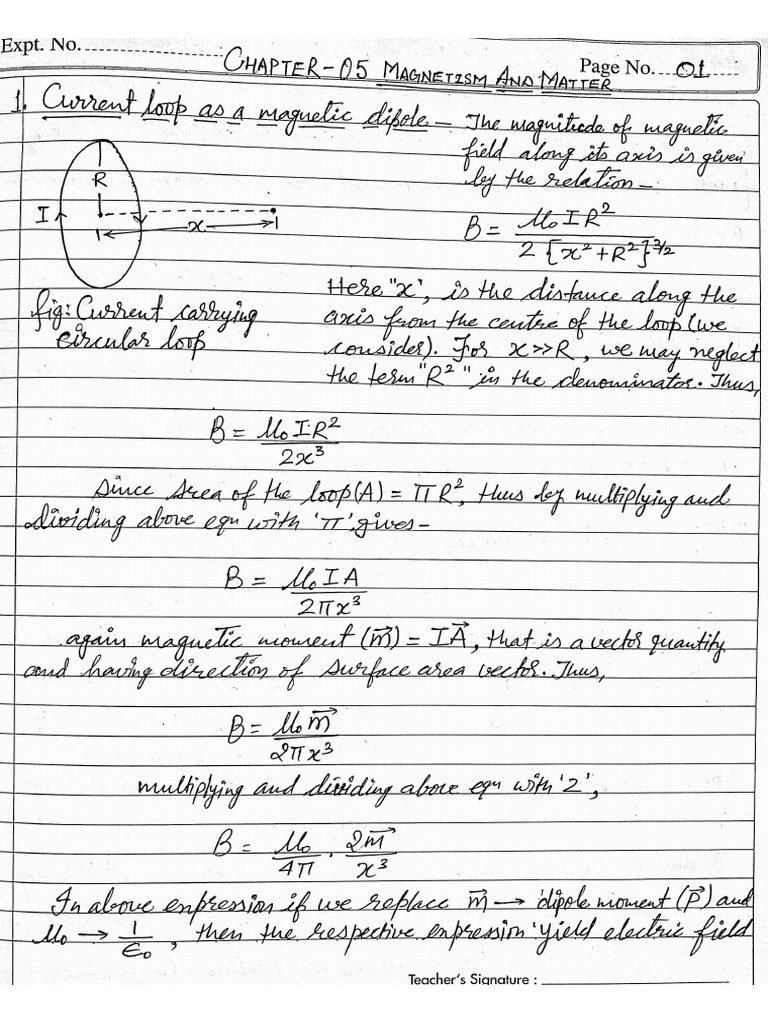 Expt. No.
CHAPTER-05 MAGNETISM AND MATTER
Page No. 01
1. Current loop as a magnetic dipole – The magnitude of magnetic
field along its axis is given
by the relation –
R
I
x
B = μ₀IR² / 2[x²+R²]^3/2
fig: Current carrying
circular loop
Here "x", is the distance along the
axis from the centre of the loop (we
consider). For x>>R, we may neglect
the term "R²" in the denominator. Thus,
B = μ₀IR² / 2x³
Since Area of the loop (A) = πR², thus by multiplying and
dividing above eqn with 'π', gives –
B = μ₀IA / 2πx³
again magnetic moment (m⃗) = IA⃗, that is a vector quantity
and having direction of surface area vector. Thus,
B = μ₀m⃗ / 2πx³
multiplying and dividing above eqn with '2',
B = μ₀/4π · 2m⃗/x³
In above expression if we replace m⃗ → dipole moment (P⃗) and
μ₀ → 1/ε₀, then the respective expression yield electric field
Teacher's Signature :